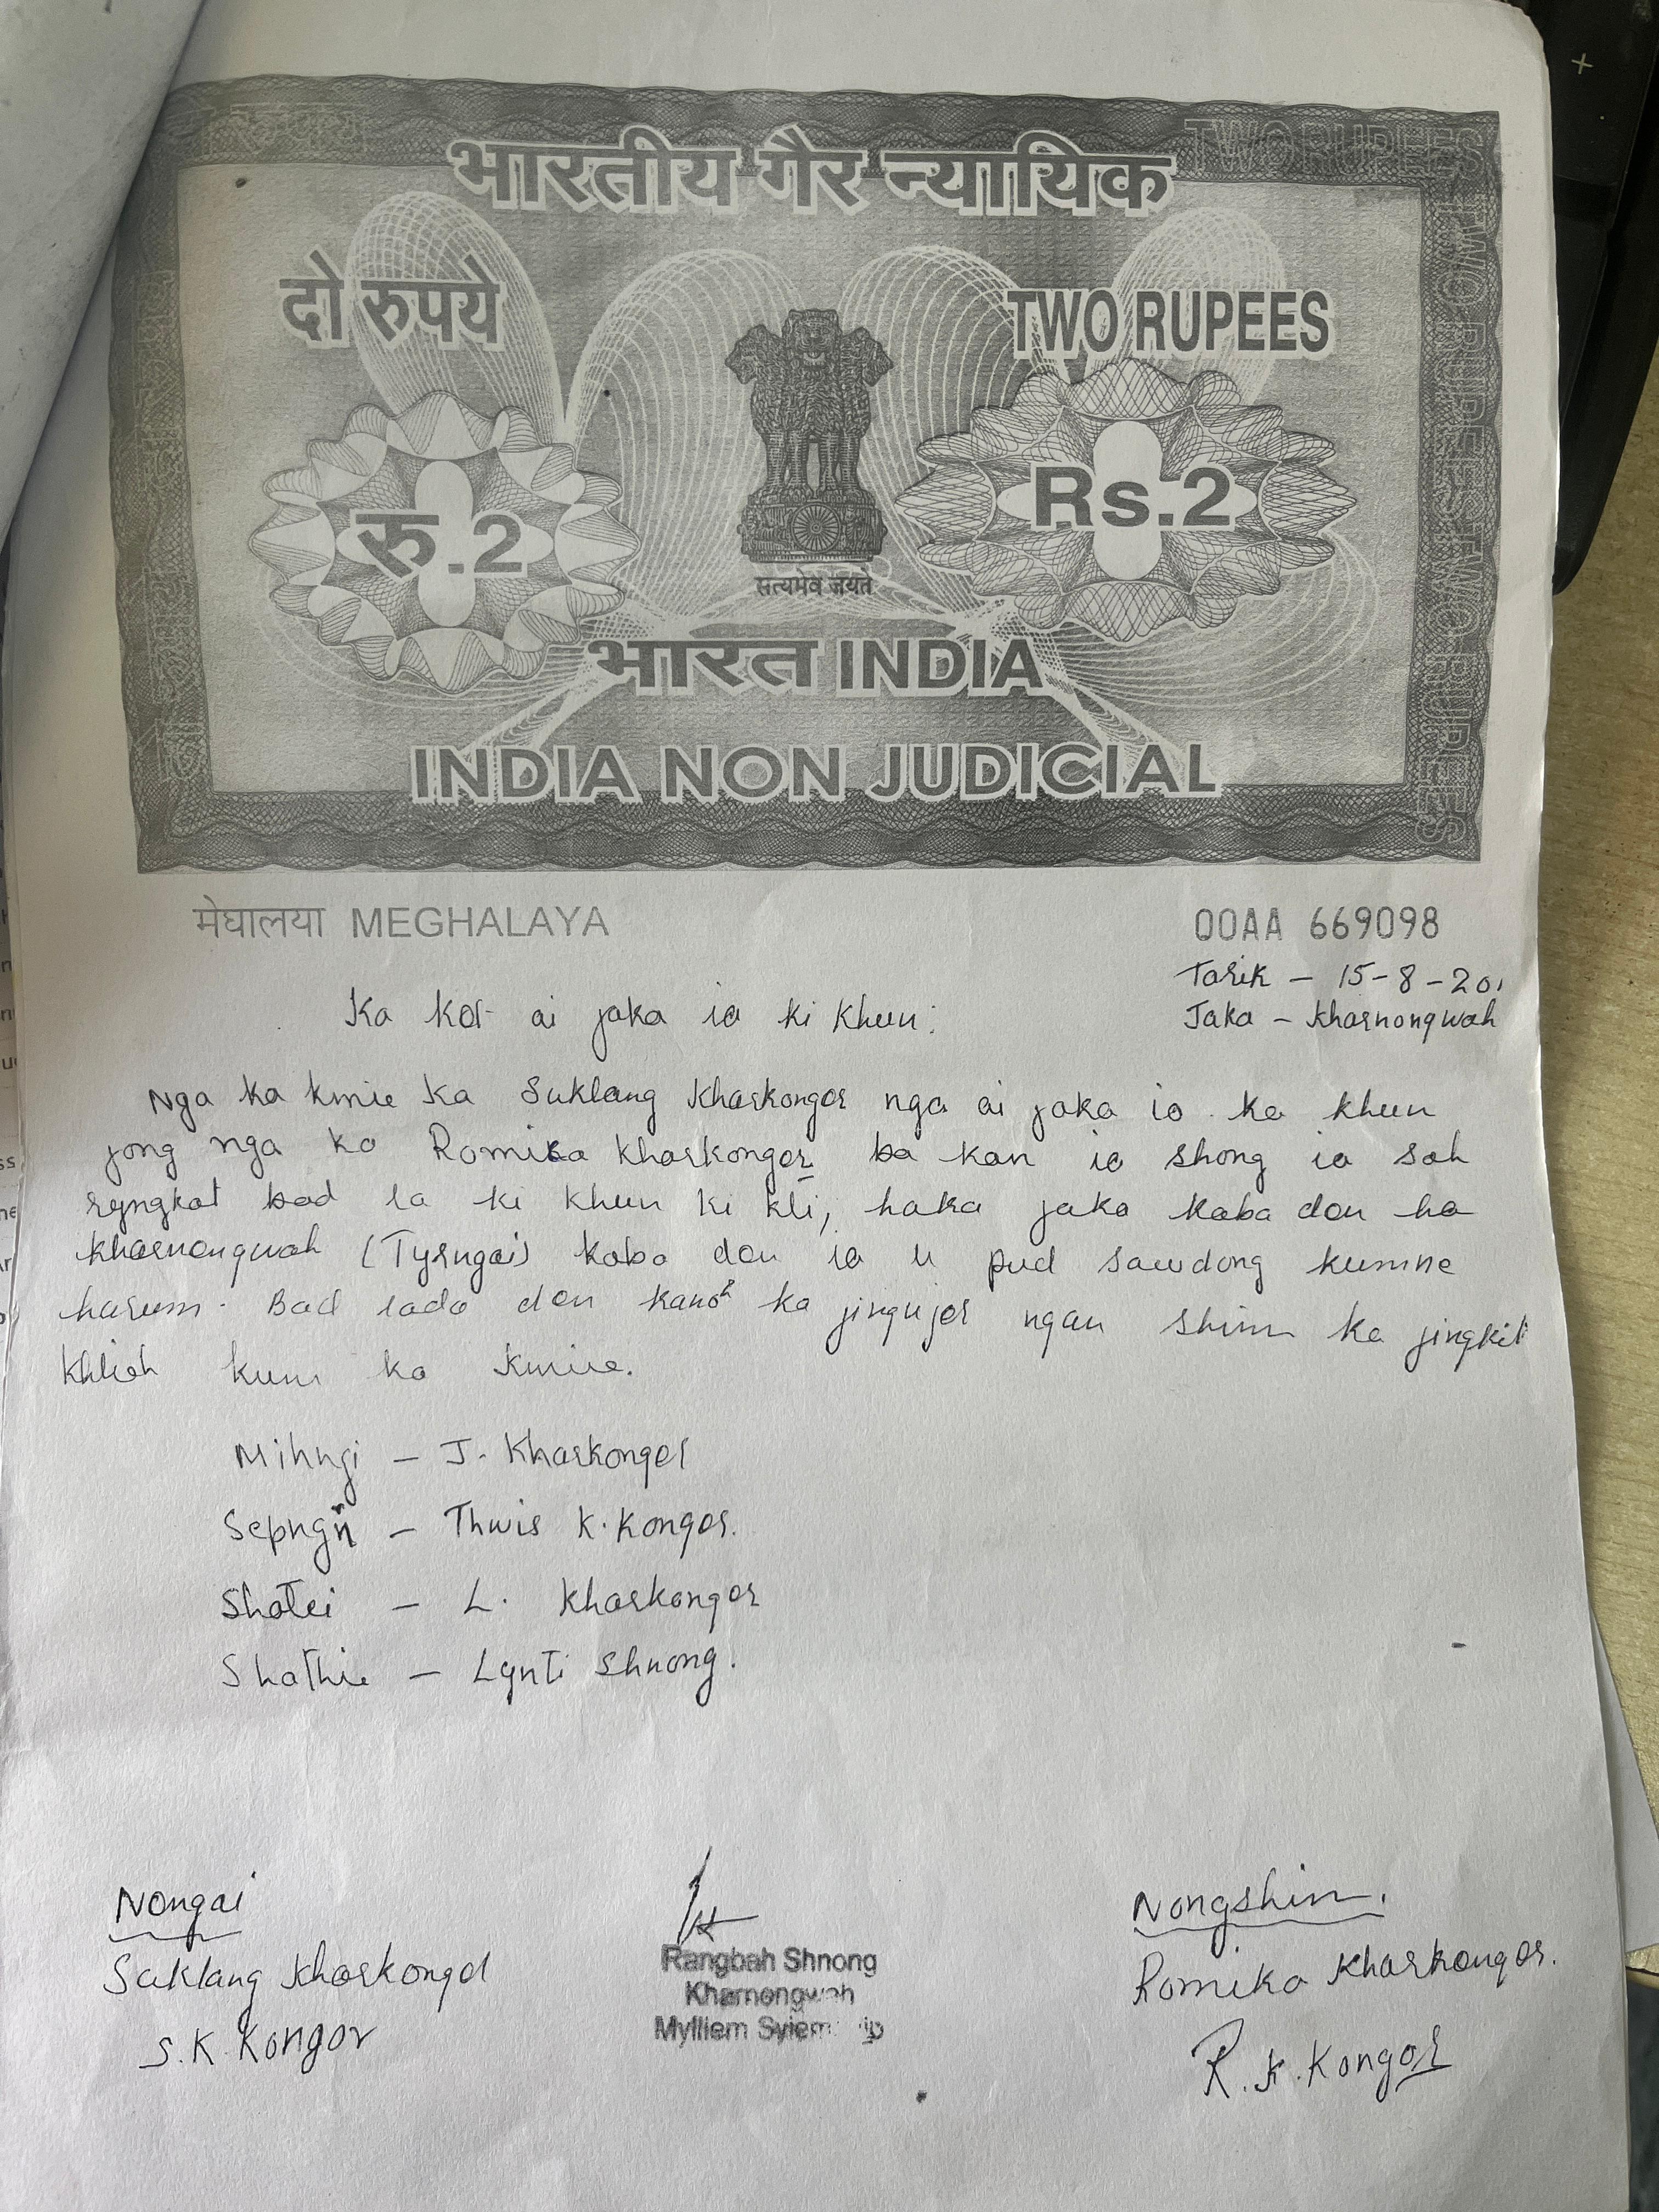 भारतीय गैर न्यायिक
TWO RUPEES
दो रुपये
TWO RUPEES
रु.2
Rs.2
सत्यमेव जयते
भारत INDIA
INDIA NON JUDICIAL
मेघालया MEGHALAYA
00AA 669098
Tarik - 15-8-20
Jaka - Kharnongwah
Ka kot ai jaka ia ki khun:
Nga ka kmie ka Suklang Kharkongor nga ai jaka ia ka khun
jong nga ka Romika Kharkongor ba kan ia shong ia sah
ryngkat bad la ki khun ki kti, haka jaka kaba don ha
Kharnongwah (Tyrngai) kaba don ia u pud sawdong kumne
harum. Bad lada don kano ka jingujor ngan shim ka jingkit
khlieh kum ka kmie.
Mihngi - J. Kharkongor
Sepngi - Thwis K. Kongor.
Shatei - L. Kharkongor
Shathie - Lynti Shnong.
Nongai
Suklang Kharkongor
S.K. Kongor
Rangbah Shnong
Kharnongwah
Mylliem
Nongshim.
Romika Kharkongor.
R.K. Kongor